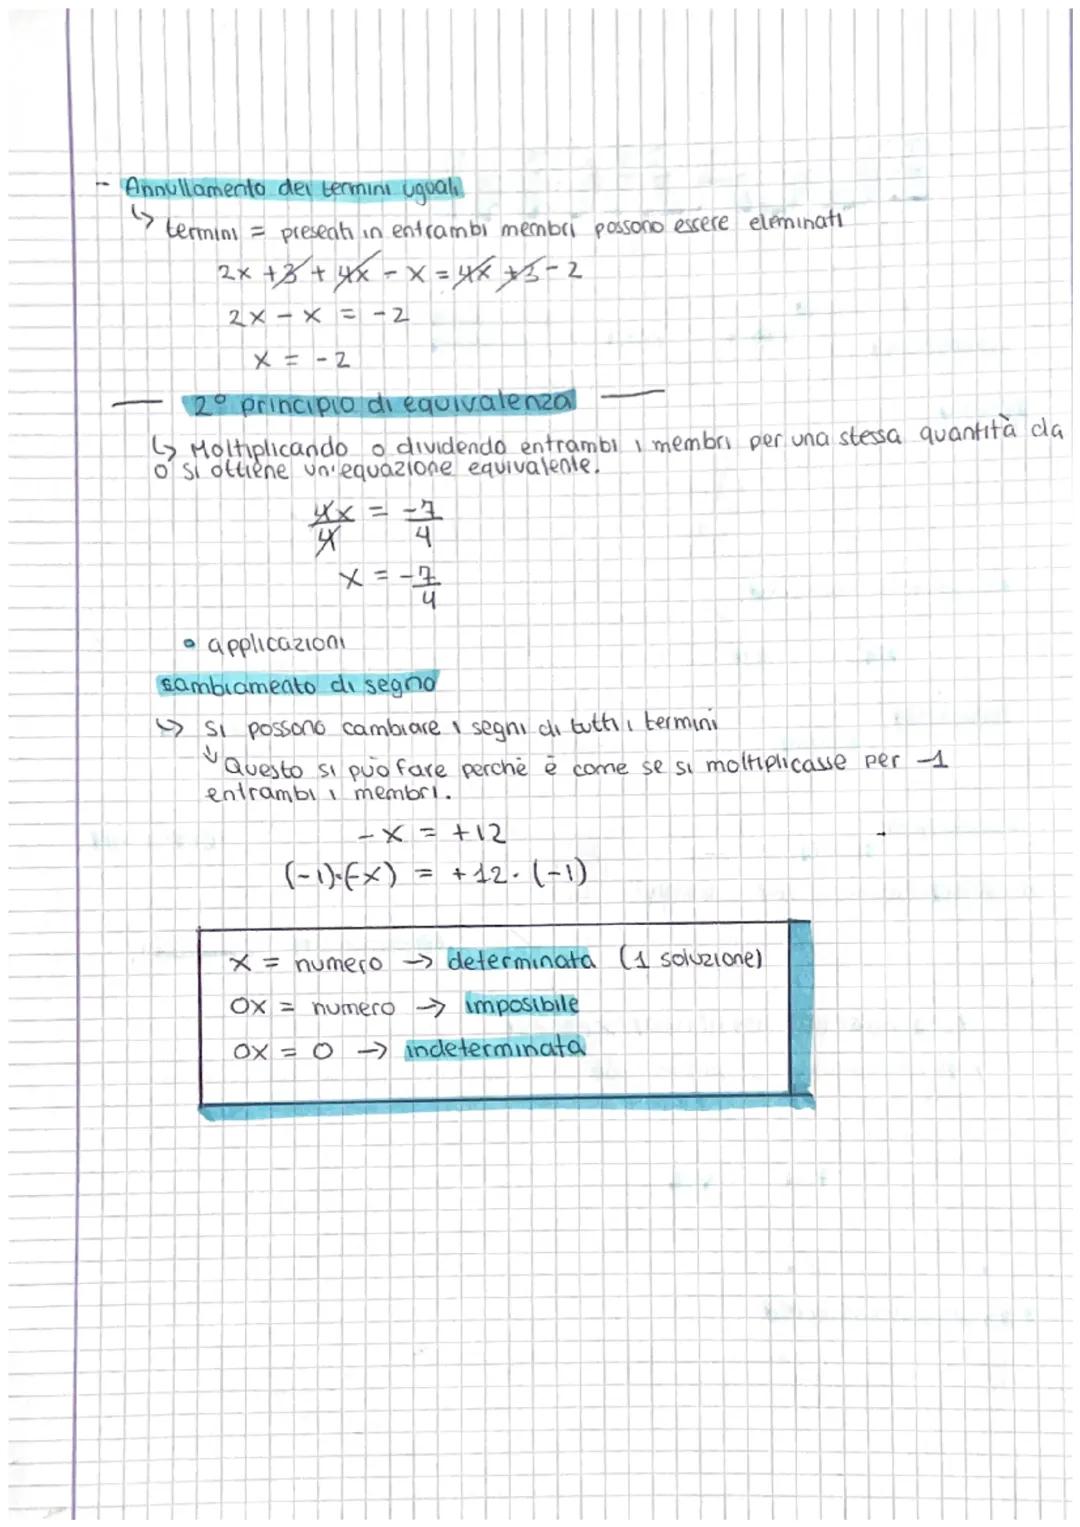 - Annullamento dei termini uguali
↳ termini = presenti in entrambi membri possono essere eleminati
2x +3 + 4x - x = 4x +3 - 2
2x - x = -2
x = -2
2° principio di equivalenza
↳ Moltiplicando o dividendo entrambi i membri per una stessa quantità da
0 si ottiene un'equazione equivalente.
4x = -7
4 4
x = -7
4
• applicazioni
sambiamento di segno
↳ si possono cambiare i segni di tutti i termini
↓ Questo si può fare perchè è come se si moltiplicasse per -1
entrambi i membri.
-x = +12
(-1)·(-x) = +12·(-1)
x = numero → determinata (1 soluzione)
0x = numero → imposibile
0x = 0 → indeterminata